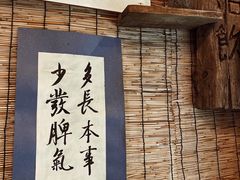 多長本事
少發脾氣